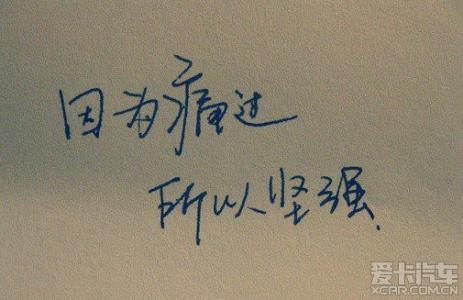 因为痛过
所以坚强.
爱卡汽车
XCAR.COM.CN